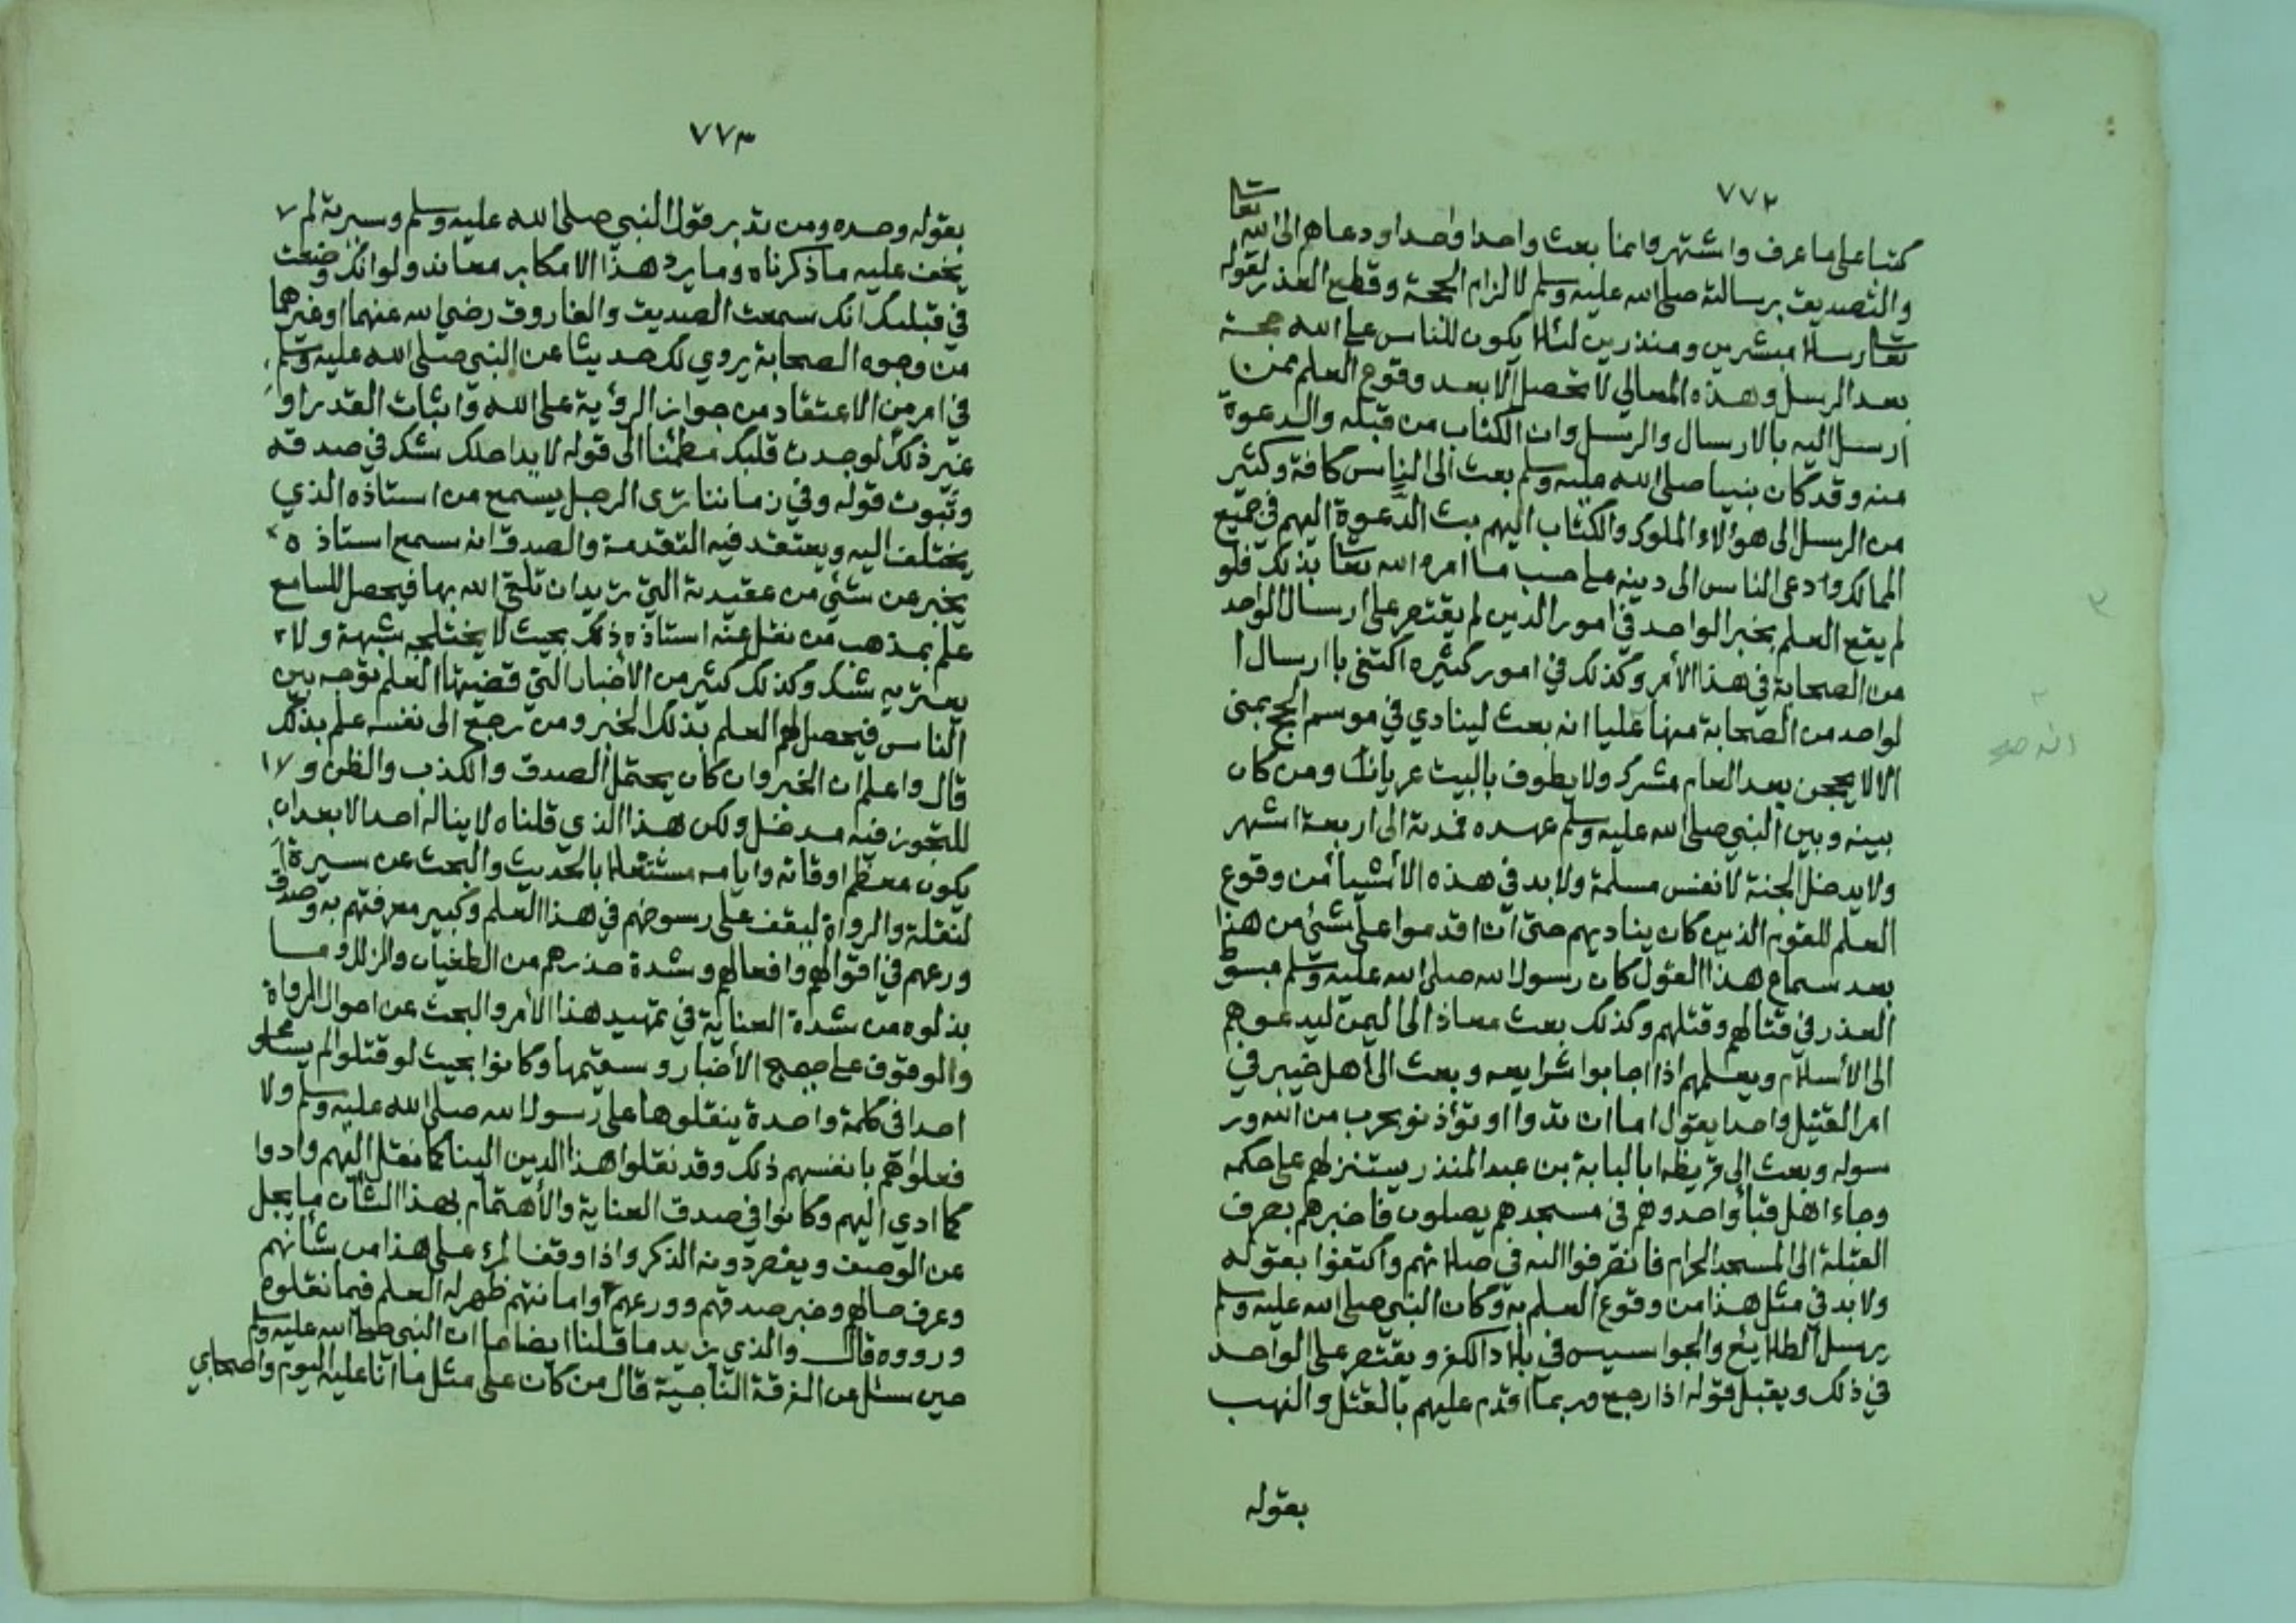 ٧٧٢
كتبا على ما عرف واشتهر وانما بعث واحدا واحدا ودعاهم الى الله تعا
والتصديق برسالته صلى الله عليه وسلم لالزام الحجة وقطع العذر لقوله
تعا رسلا مبشرين ومنذرين لئلا يكون للناس على الله حجة
بعد الرسل وهذه المعالي لا تحصل الا بعد وقوع العلم ممن
ارسل اليه بالارسال والرسل وان الكتاب من قبله والدعوة
منه وقد كان نبينا صلى الله عليه وسلم بعث الى الناس كافة وكثير
من الرسل الى هوالاء الملوك والكتاب اليهم بث الدعوة اليهم في جميع
الممالك وادعى الناس الى دينه على حسب ما امره الله تعا بذلك فلو
لم يقع العلم بخبر الواحد في امور الدين لم يقتصر على ارسال الواحد
من الصحابة في هذا الأمر وكذلك في امور كثيره اكتفى باارسال ا
لواحد من الصحابة منها عليا انه بعث لينادي في موسم الحج بمنى
الا لا يحجن بعد العام مشرك ولا يطوف بالبيت عريانا ومن كان
بينه وبين النبي صلى الله عليه وسلم عهده فمدته الى اربعة اشهر
ولا يدخل الجنة لا نفس مسلمة ولا بد في هذه الأشيأ من وقوع
العلم للقوم الذين كان يناديهم حتى ان اقدموا على شئ من هذا
بعد سماع هذا القول كان رسول الله صلى الله عليه وسلم مبسوط
العذر في قتالهم وقتلهم وكذلك بعث معاذ الى اليمن ليدعوهم
الى الأسلام ويعلمهم اذا اجابوا شرايعه وبعث الى اهل خيبر في
امر القتيل واحدا يقول اما ان تدوا او تؤذنو بحرب من الله ور
سوله وبعث الى قريظه ابا لبابة بن عبد المنذر يستنزلهم على حكمه
وجاء اهل قبأ واحد وهم في مسجدهم يصلون فاخبرهم بصرف
القبلة الى المسجد الحرام فانصرفوا اليه في صلاتهم واكتفوا بقوله
ولا بد في مثل هذا من وقوع العلم به وكان النبي صلى الله عليه وسلم
يرسل الطلايع والجواسيس في بلاد الكفر ويقتصر على الواحد
في ذلك ويقبل قوله اذا رجع وربما اقدم عليهم بالقتل والنهب
بقوله
٧٧٣
بقوله وحده ومن تدبر قول النبي صلى الله عليه وسلم وسيرته لم
يخف عليه ما ذكرناه وما يرد هذا الا مكابر معاند ولو انك وضعت
في قبلبك انك سمعت الصديق والفاروق رضي الله عنهما اوغيرهما
من وجوه الصحابة يروي لك حديثا عن النبي صلى الله عليه وسلم
في امر من الاعتقاد من جواز الرؤية على الله واثبات القدر او
غير ذلك لوجدت قلبك مطمئنا الى قوله لا يداخلك شك في صدقه
وثبوت قوله وفي زماننا ترى الرجل يسمع من استاذه الذي
يختلف اليه ويعتقد فيه التقدمة والصدق انه سمع استاذه
يخبر عن شئي من عقيدته التي يريد ان تلقى الله بها فيحصل للسامع
علم بمذهب من نقل عنه استاذه ذلك بحيث لا يختلجه شبهة ولا
يعتريه شك وكذلك كثير من الأخبار التي قضيتها العلم توجه بين
الناس فيحصل لهم العلم بذلك الخبر ومن رجع الى نفسه علم بذلك
قال واعلم ان الخبر وان كان يحتمل الصدق والكذب والظن و
للتجوز فيه مدخل ولكن هذا الذي قلناه لا يناله احد الا بعد ان
يكون معظم اوقاته وايامه مشتغلا بالحديث والبحث عن سيرة ا
لنقلة والرواة ليقف على رسوخهم في هذا العلم وكبير معرفتهم به وصدق
ورعهم في اقوالهم وافعالهم وشدة حذرهم من الطغيان والزلل وما
بذلوه من شدة العناية في تمهيد هذا الأمر والبحث عن احوال الرواة
والوقوف على صحيح الأخبار وسقيمها وكانوا بحيث لو قتلوا لم يسامحو
احدا في كلمة واحدة ينقلوها على رسول الله صلى الله عليه وسلم ولا
فعلوا هم بانفسهم ذلك وقد نقلوا هذا الدين الينا كما نقل اليهم وادوا
كما ادي اليهم وكانوا في صدق العناية والأهتمام بهذا الشأن ما يجل
عن الوصف ويقصر دونه الذكر واذا وقف المرء على هذا من شأنهم
وعرف حالهم وخبر صدقهم وورعهم وامانتهم ظهر له العلم فيما نقلوه
ورووه قال والذي يزيد ما قلنا ايضاحا ان النبي صلى الله عليه وسلم
حين سئل عن الفرقة الناجية قال من كان على مثل ما انا عليه اليوم واصحابي